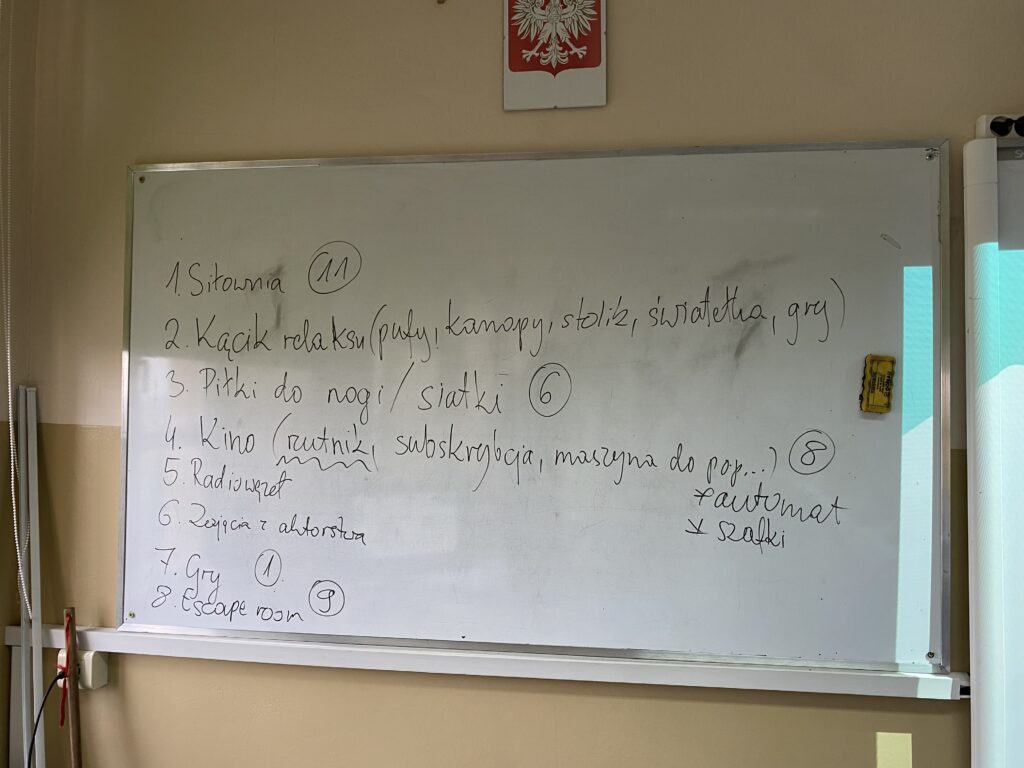 1. Siłownia 11
2. Kącik relaksu (pufy, kanapy, stolik, światełka, gry)
3. Piłki do nogi / siatki 6
4. Kino (rzutnik, subskrybcja, maszyna do pop...) 8
+ automat
szafki
5. Radiowęzeł
6. Zajęcia z aktorstwa
7. Gry 1
8. Escape room 9